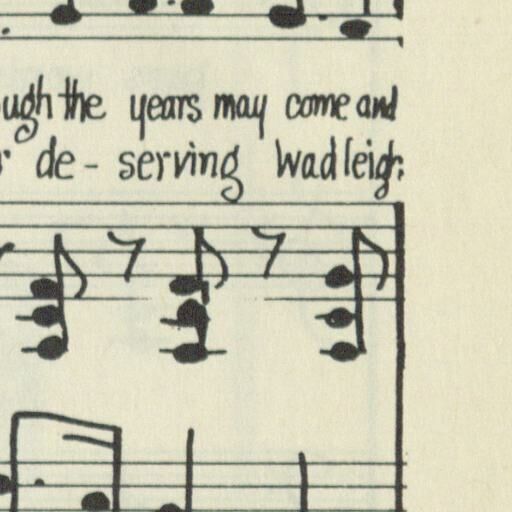 ugh the years may come and
de - serving Wadleigh;